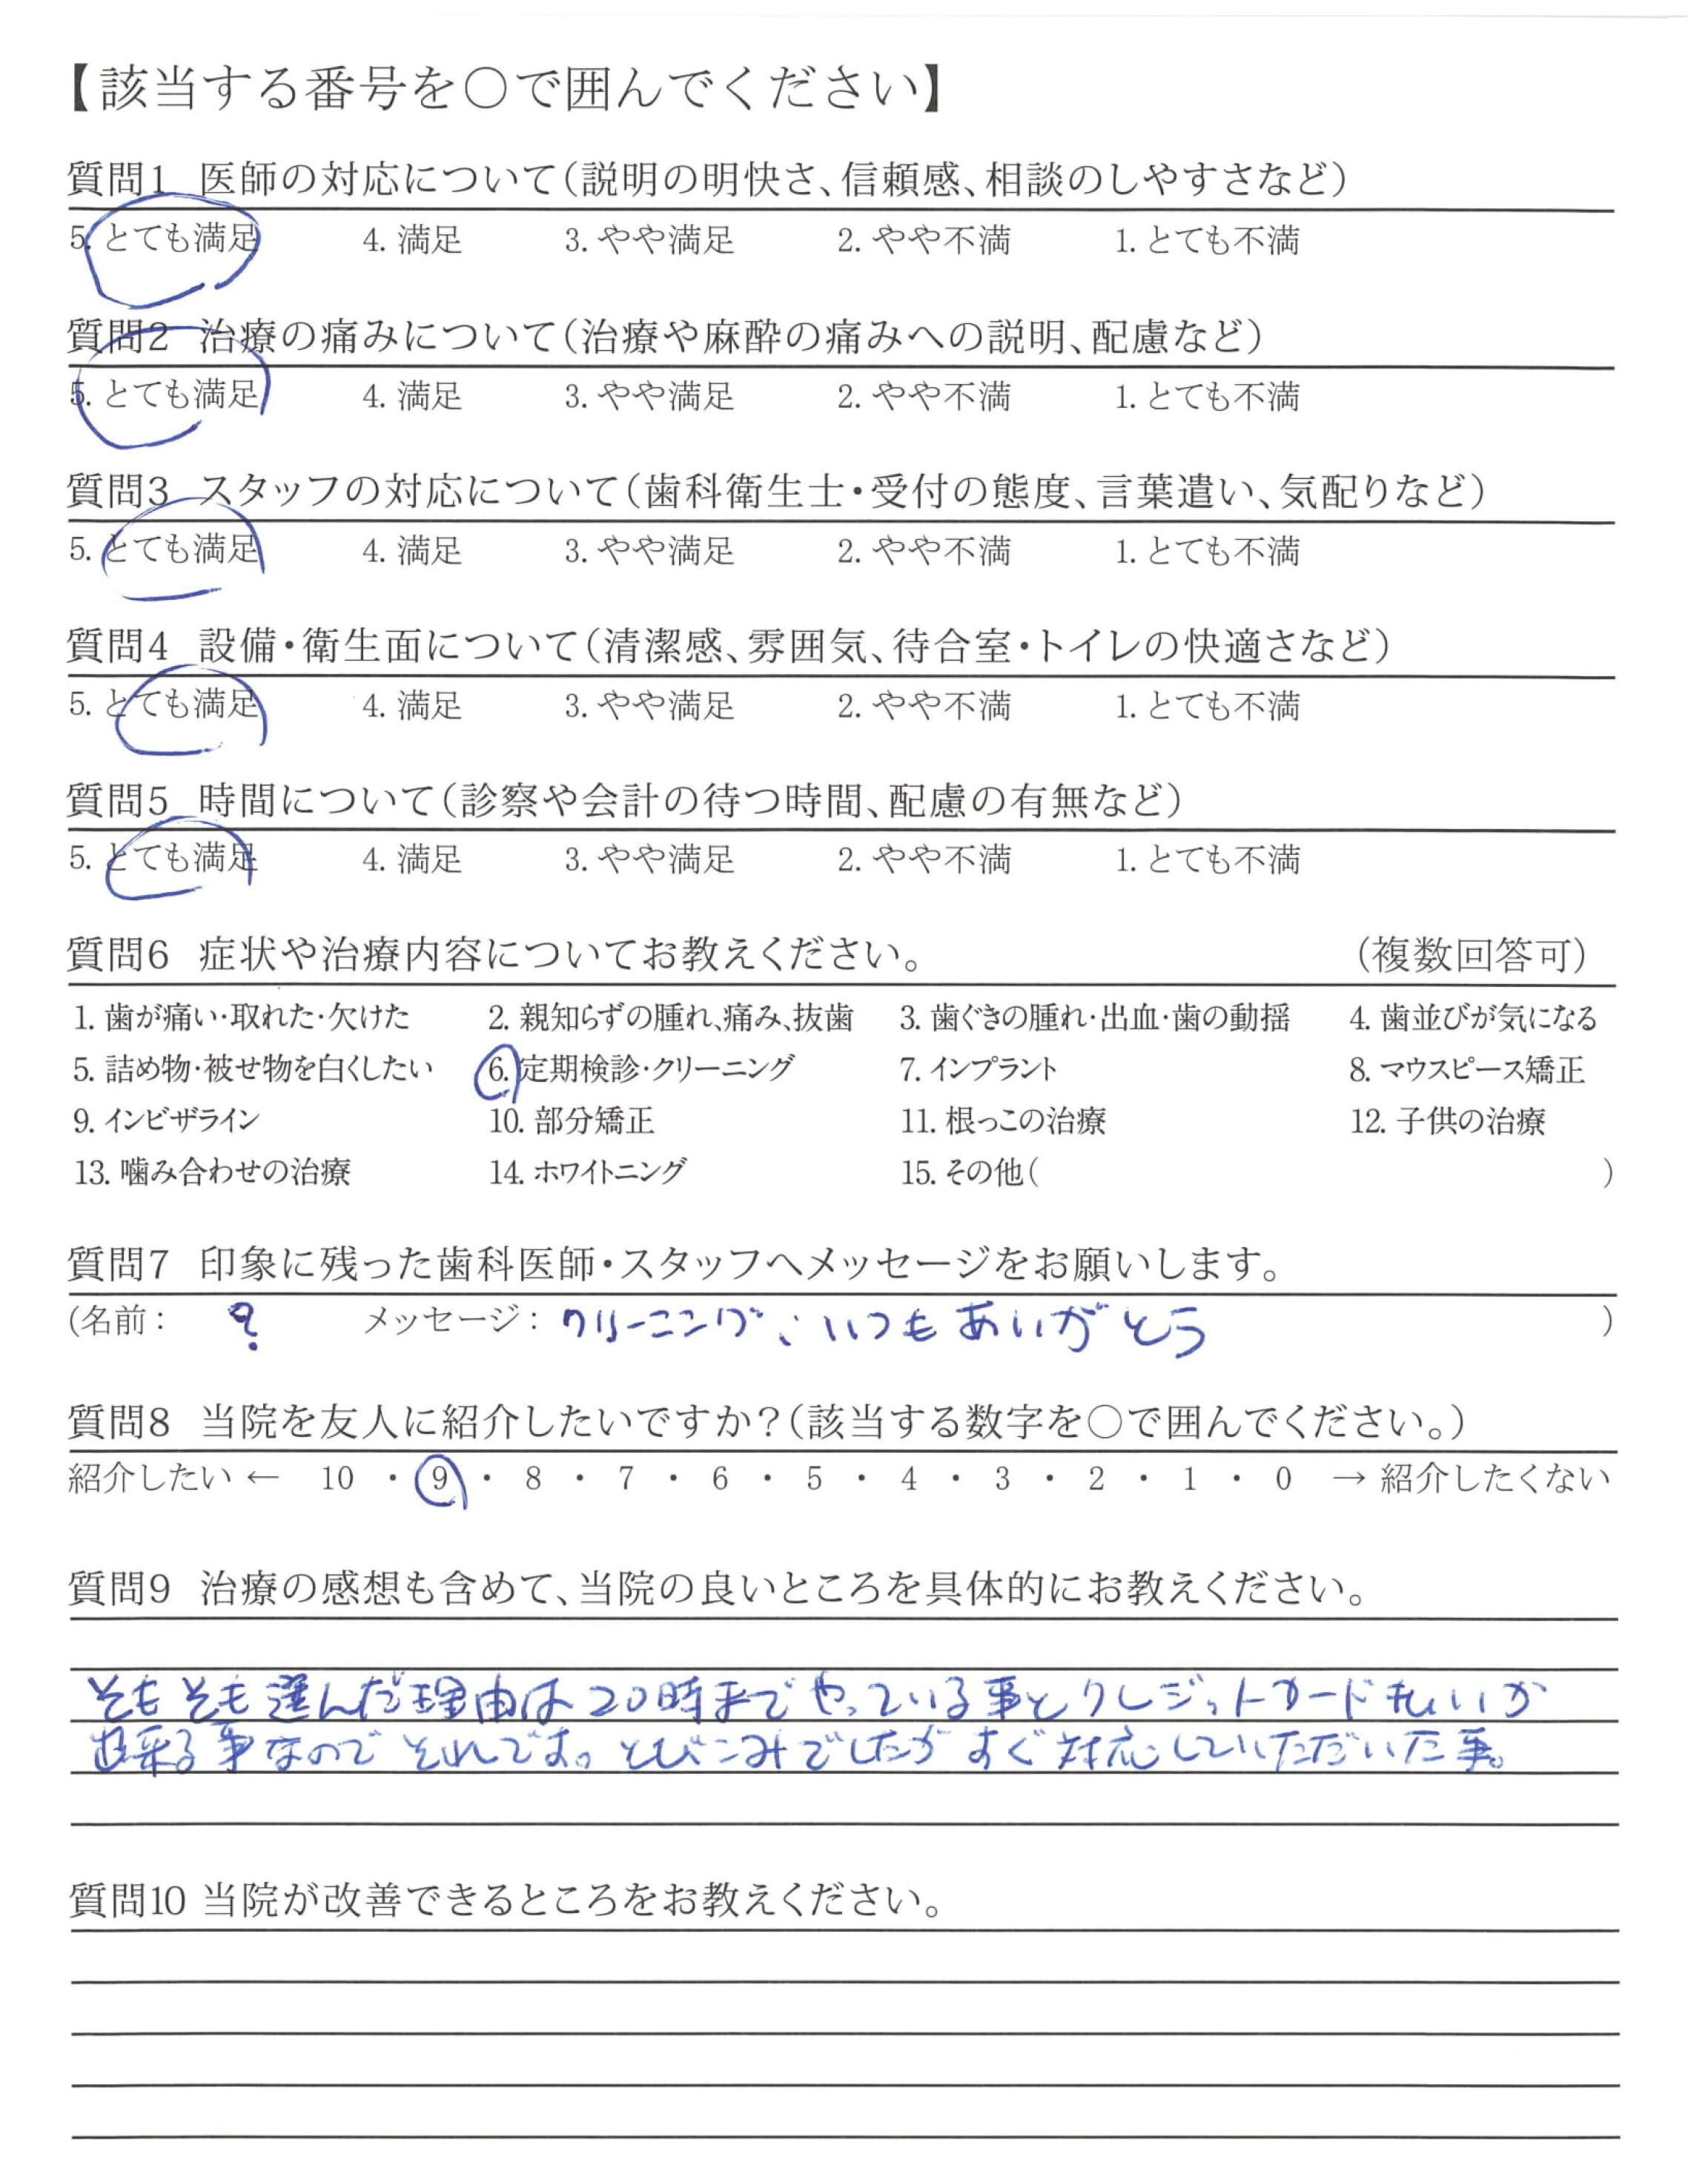 【該当する番号を○で囲んでください】
質問1 医師の対応について(説明の明快さ、信頼感、相談のしやすさなど)
5. とても満足 4. 満足 3. やや満足 2. やや不満 1. とても不満
質問2 治療の痛みについて(治療や麻酔の痛みへの説明、配慮など)
5. とても満足 4. 満足 3. やや満足 2. やや不満 1. とても不満
質問3 スタッフの対応について(歯科衛生士・受付の態度、言葉遣い、気配りなど)
5. とても満足 4. 満足 3. やや満足 2. やや不満 1. とても不満
質問4 設備・衛生面について(清潔感、雰囲気、待合室・トイレの快適さなど)
5. とても満足 4. 満足 3. やや満足 2. やや不満 1. とても不満
質問5 時間について(診察や会計の待つ時間、配慮の有無など)
5. とても満足 4. 満足 3. やや満足 2. やや不満 1. とても不満
質問6 症状や治療内容についてお教えください。 (複数回答可)
1. 歯が痛い・取れた・欠けた 2. 親知らずの腫れ、痛み、抜歯 3. 歯ぐきの腫れ・出血・歯の動揺 4. 歯並びが気になる
5. 詰め物・被せ物を白くしたい 6. 定期検診・クリーニング 7. インプラント 8. マウスピース矯正
9. インビザライン 10. 部分矯正 11. 根っこの治療 12. 子供の治療
13. 噛み合わせの治療 14. ホワイトニング 15. その他( )
質問7 印象に残った歯科医師・スタッフへメッセージをお願いします。
(名前: ? メッセージ: クリーニング、いつもありがとう )
質問8 当院を友人に紹介したいですか?(該当する数字を○で囲んでください。)
紹介したい ← 10 ・ 9 ・ 8 ・ 7 ・ 6 ・ 5 ・ 4 ・ 3 ・ 2 ・ 1 ・ 0 → 紹介したくない
質問9 治療の感想も含めて、当院の良いところを具体的にお教えください。
そもそも選んだ理由は20時までやっている事とクレジットカード払いが
出来る事なのでそれです。とびこみでしたがすぐ対応していただいた事。
質問10 当院が改善できるところをお教えください。